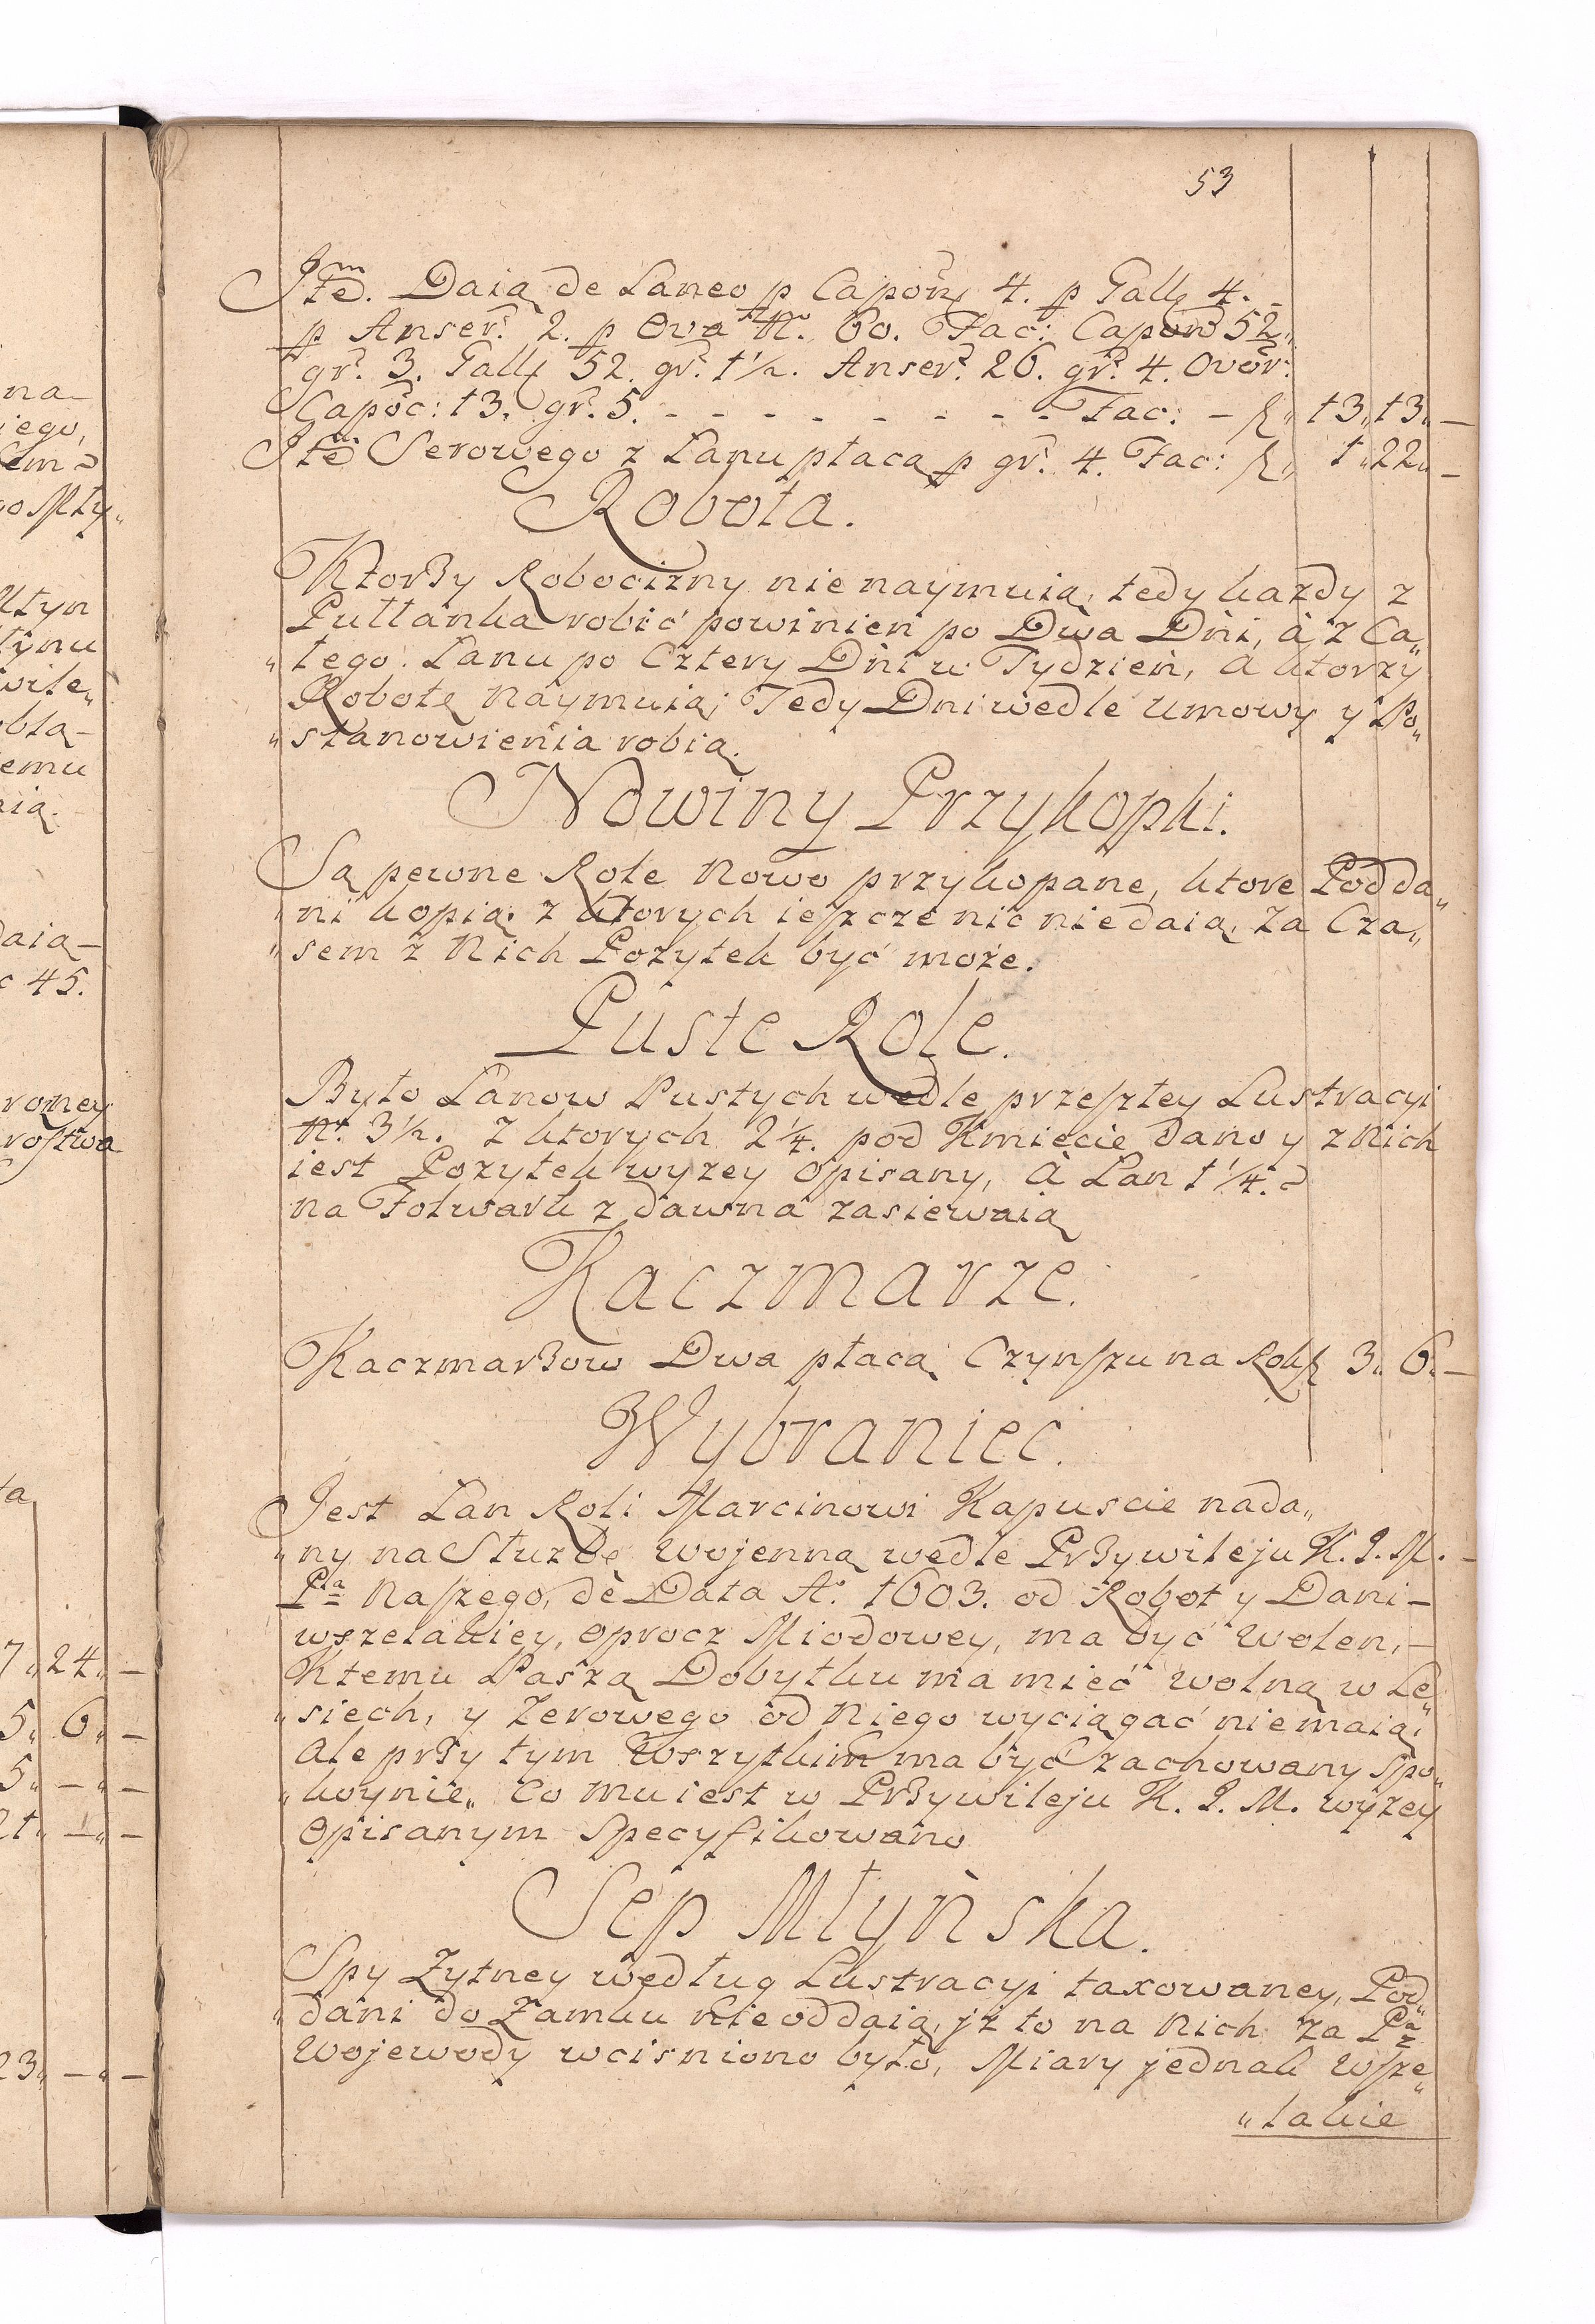 53
Jtem. Daią de Laneo p Capon 4. p Gall 4.
p Anser. 2. p Ova No. 60. Fac: Capon 52.
gr. 3. Gall 52. gr. 1½. Anser. 26. gr. 4. Ovor:
Capoc: 13. gr. 5. - - - - - - - - - Fac: - f. 13. 13. -
Jtem Serowego z Lanu płacą p gr. 4. Fac: f. 1. 22. -
Robota.
Ktorzy Robocizny nie naymuią, tedy każdy z
Pułłanka robić powinien po Dwa Dni, à z Ca„
„łego Lanu po Cztery Dni w Tydzień, à ktorzy
Robotę naymuią; Tedy Dni wedle umowy y Po„
„stanowienia robią.
Nowiny Przykopki.
Są pewne Role nowo przykopane, ktore Podda„
„ni kopią, z ktorych ieszcze nic niedaią, za Cza„
„sem z nich Pożytek być może.
Puste Role.
Było Lanow Pustych wedle przeszłey Lustracyi
No. 3½. z ktorych 2¼. pod Kmiecie dano y z nich
iest Pożytek wyżey opisany, à Lan 1¼.
na Folwark z dawna zasiewaią
Kaczmarze.
Kaczmarzow Dwa płacą Czynszu na Rok f 3. 6. -
Wybraniec.
Jest Lan Roli Marcinowi Kapuscie nada„
„ny na Służbę wojenną wedle Przywileju K. J. M. -
Pa naszego, de Data Ao. 1603. od Robot y Dani -
wszelakiey, oprocz Miodowey, ma być wolen, -
Ktemu Paszą Dobytku ma mieć wolną w Le„
„siech, y Żerowego od niego wyciągać niemaią,
ale przy tym wszytkim ma być zachowany spo„
„koynie„ co mu iest w Przywileju K. J. M. wyżey
opisanym specyfikowano
Sep Młyńska.
Spy Żytney według Lustracyi taxowaney, Pod„
„dani do Zamku nie oddaią, jż to na nich za Pa
Wojewody wcisniono było, Miary jednak wsze„
„lakie